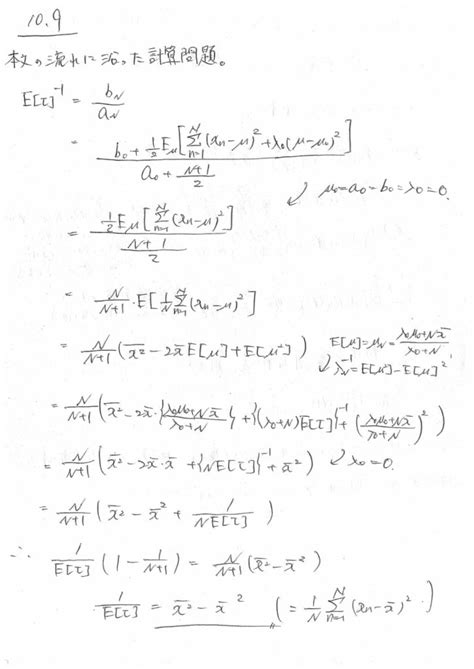 10.9
本文の流れに沿った計算問題。
E[τ]⁻¹ = b_N / a_N
= (b₀ + ½ E_μ[Σ_{n=1}^{N} (x_n−μ)² + λ₀(μ−μ₀)²]) / (a₀ + (N+1)/2)
↙ μ₀=a₀=b₀=λ₀=0.
= (½ E_μ[Σ_{n=1}^{N} (x_n−μ)²]) / ((N+1)/2)
= N/(N+1) · E[1/N Σ_{n=1}^{N} (x_n−μ)²]
= N/(N+1) (x̄² − 2x̄E[μ] + E[μ²]) E[μ]=μ_N=(λ₀μ₀+Nx̄)/(λ₀+N)
↙ λ_N⁻¹=E[μ²]−E[μ]²
= N/(N+1) (x̄² − 2x̄·{(λ₀μ₀+Nx̄)/(λ₀+N)} + {(λ₀+N)E[τ]}⁻¹ + ((λ₀μ₀+Nx̄)/(λ₀+N))²)
= N/(N+1) (x̄² − 2x̄·x̄ + {NE[τ]}⁻¹ + x̄²) ↙ λ₀=0.
= N/(N+1) (x̄² − x̄² + 1/(NE[τ]))
∴ 1/E[τ] (1 − 1/(N+1)) = N/(N+1) (x̄² − x̄²)
1/E[τ] = x̄² − x̄² (= 1/N Σ_{n=1}^{N} (x_n−x̄)²)